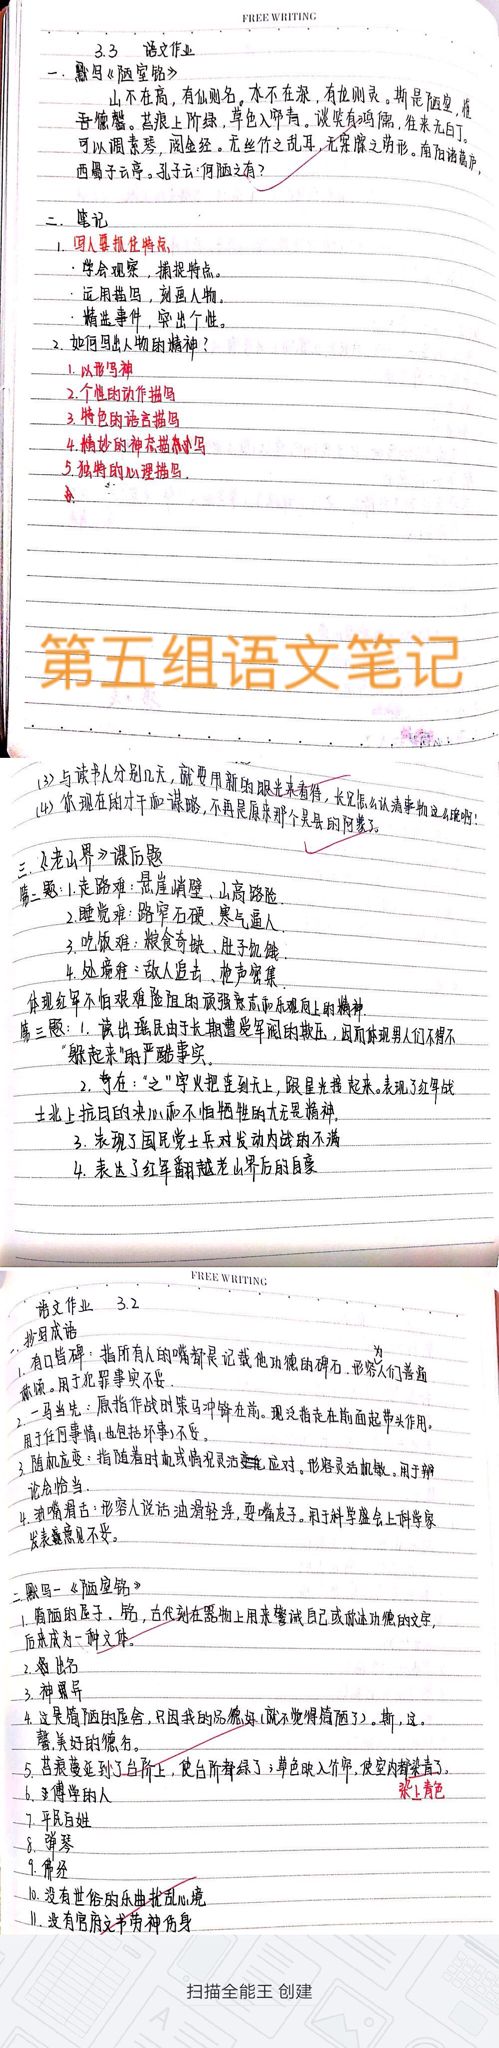 FREE WRITING
3.3 语文作业
一. 默写《陋室铭》
山不在高，有仙则名。水不在深，有龙则灵。斯是陋室，惟
吾德馨。苔痕上阶绿，草色入帘青。谈笑有鸿儒，往来无白丁。
可以调素琴，阅金经。无丝竹之乱耳，无案牍之劳形。南阳诸葛庐，
西蜀子云亭。孔子云：何陋之有？
二. 笔记
1. 写人要抓住特点
·学会观察，捕捉特点。
·运用描写，刻画人物。
·精选事件，突出个性。
2. 如何写出人物的精神？
1. 以形写神
2. 个性的动作描写
3. 特色的语言描写
4. 精妙的神态描写
5. 独特的心理描写.
第五组语文笔记
(3) 与读书人分别几天，就要用新的眼光来看待，长兄怎么认清事物这么晚啊！
(4) 你现在的才干和谋略，不再是原来那个吴县的阿蒙了。
三.《老山界》课后题
第二题：1. 走路难：悬崖峭壁、山高路险.
2. 睡觉难：路窄石硬、寒气逼人.
3. 吃饭难：粮食奇缺、肚子饥饿.
4. 处境难：敌人追击、枪声密集.
体现红军不怕艰难险阻的顽强意志和乐观向上的精神.
第三题：1. 读出瑶民由于长期遭受军阀的欺压，因而体现男人们不得不
“躲起来”的严酷事实。
2. 奇在：“之”字火把连到天上，跟星光接起来。表现了红军战
士北上抗日的决心和不怕牺牲的大无畏精神.
3. 表现了国民党士兵对发动内战的不满
4. 表达了红军翻越老山界后的自豪
FREE WRITING
语文作业 3.2
一. 抄写成语
1. 有口皆碑：指所有人的嘴都是记载他功德的碑石. 形容为人们普遍
称颂。用于犯罪事实不妥.
2. 一马当先：原指作战时策马冲锋在前。现泛指走在前面起带头作用。
用于任何事情(也包括坏事)不妥。
3. 随机应变：指随着时机或情况灵活应对。形容灵活机敏。用于辩
论会恰当.
4. 油嘴滑舌：形容人说话油滑轻浮，耍嘴皮子。用于科学盛会上科学家
发表意见不妥。
二. 默写一《陋室铭》
1. 简陋的屋子. 铭，古代刻在器物上用来警诫自己或称述功德的文字，
后来成为一种文体。
2. 出名
3. 神异
4. 这是简陋的屋舍，只因我的品德好(就不觉得简陋了)。斯，这。
馨，美好的德行。
5. 苔痕蔓延到了台阶上，使台阶都绿了；草色映入竹帘，使室内都染青了。
染上青色
6. 博学的人
7. 平民百姓
8. 弹琴
9. 佛经
10. 没有世俗的乐曲扰乱心境
11. 没有官府文书劳神伤身
扫描全能王 创建